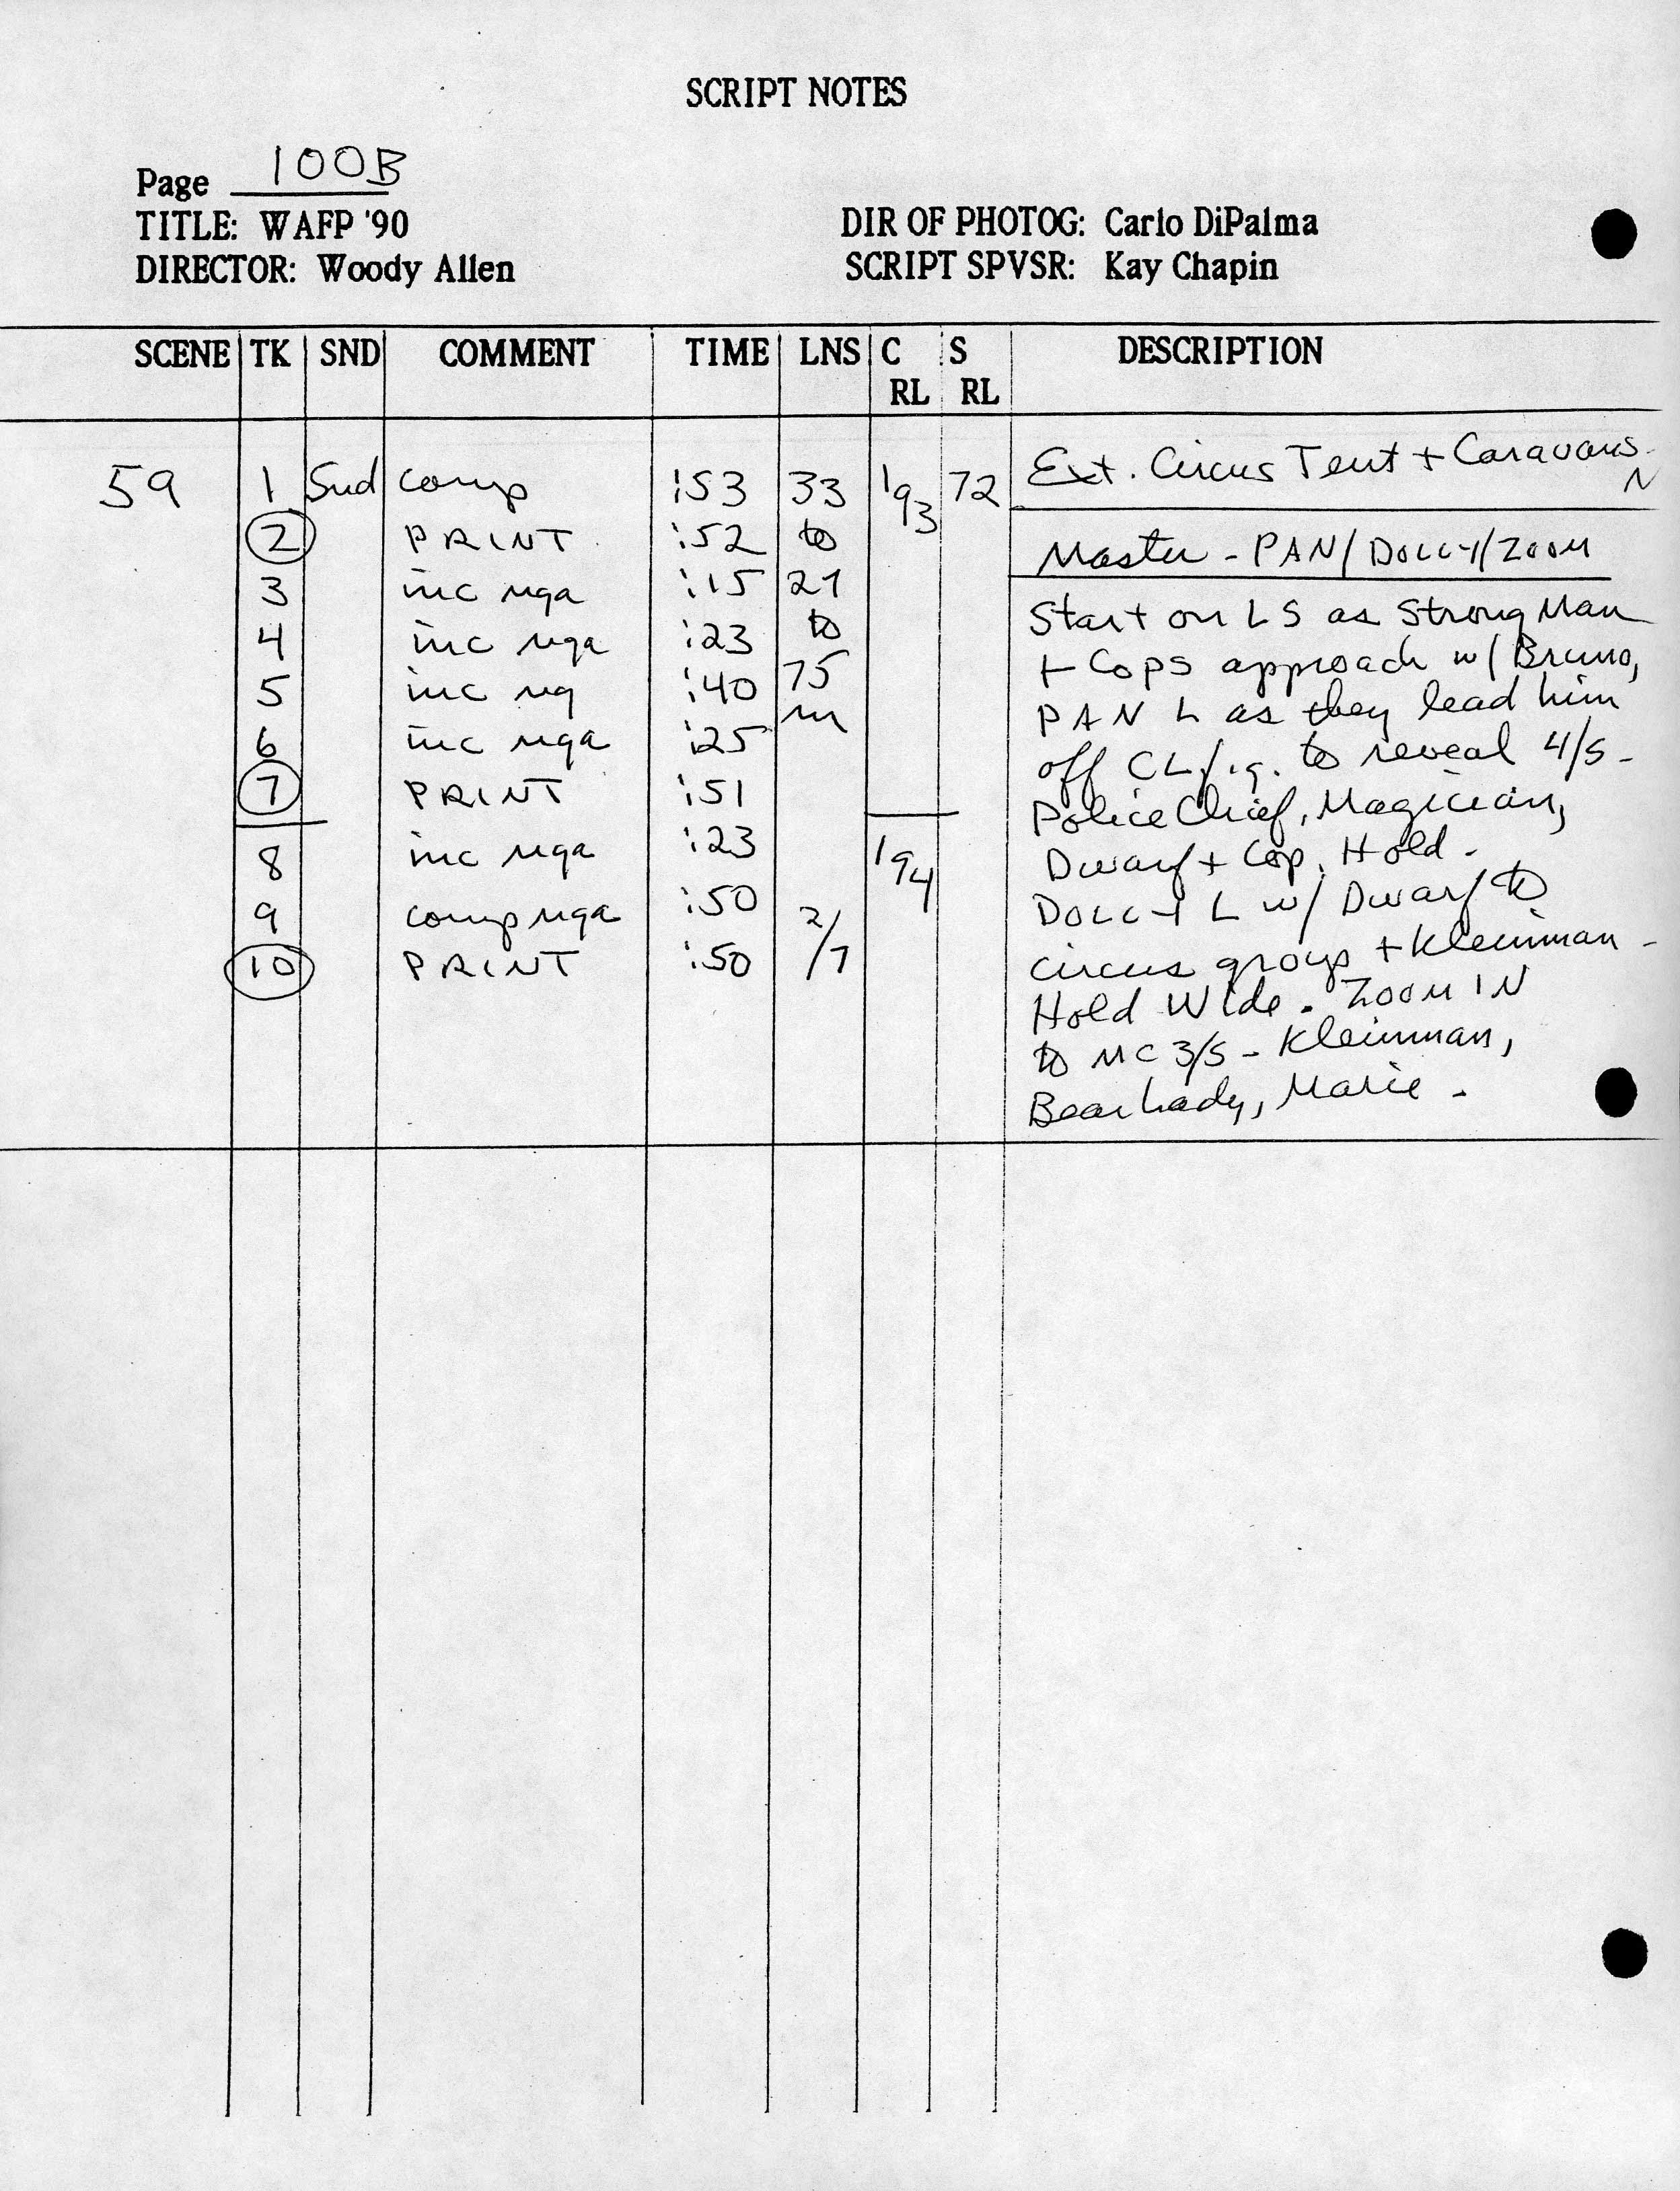 SCRIPT NOTES
Page 100B
TITLE: WAFP '90
DIRECTOR: Woody Allen
DIR OF PHOTOG: Carlo DiPalma
SCRIPT SPVSR: Kay Chapin
SCENE TK SND COMMENT TIME LNS C RL S RL DESCRIPTION
59 1 Snd comp :53 33 193 72
2 PRINT :52 to
3 inc nga :15 27
4 inc nga :23 to
5 inc ng :40 75
6 inc nga :25 m
7 PRINT :51
8 inc nga :23 194
9 comp nga :50 2/7
10 PRINT :50
Ext. Circus Tent + Caravans - N
Master - PAN/DOLLY/ZOOM
Start on LS as Strong Man
+ Cops approach w/ Bruno,
PAN L as they lead him
off CL to reveal 4/S -
Police Chief, Magician,
Dwarf + Cop. Hold -
DOLLY L w/ Dwarf to
circus group + Kleinman -
Hold Wide. ZOOM IN
to MC 3/S - Kleinman,
Bear Lady, Marie -